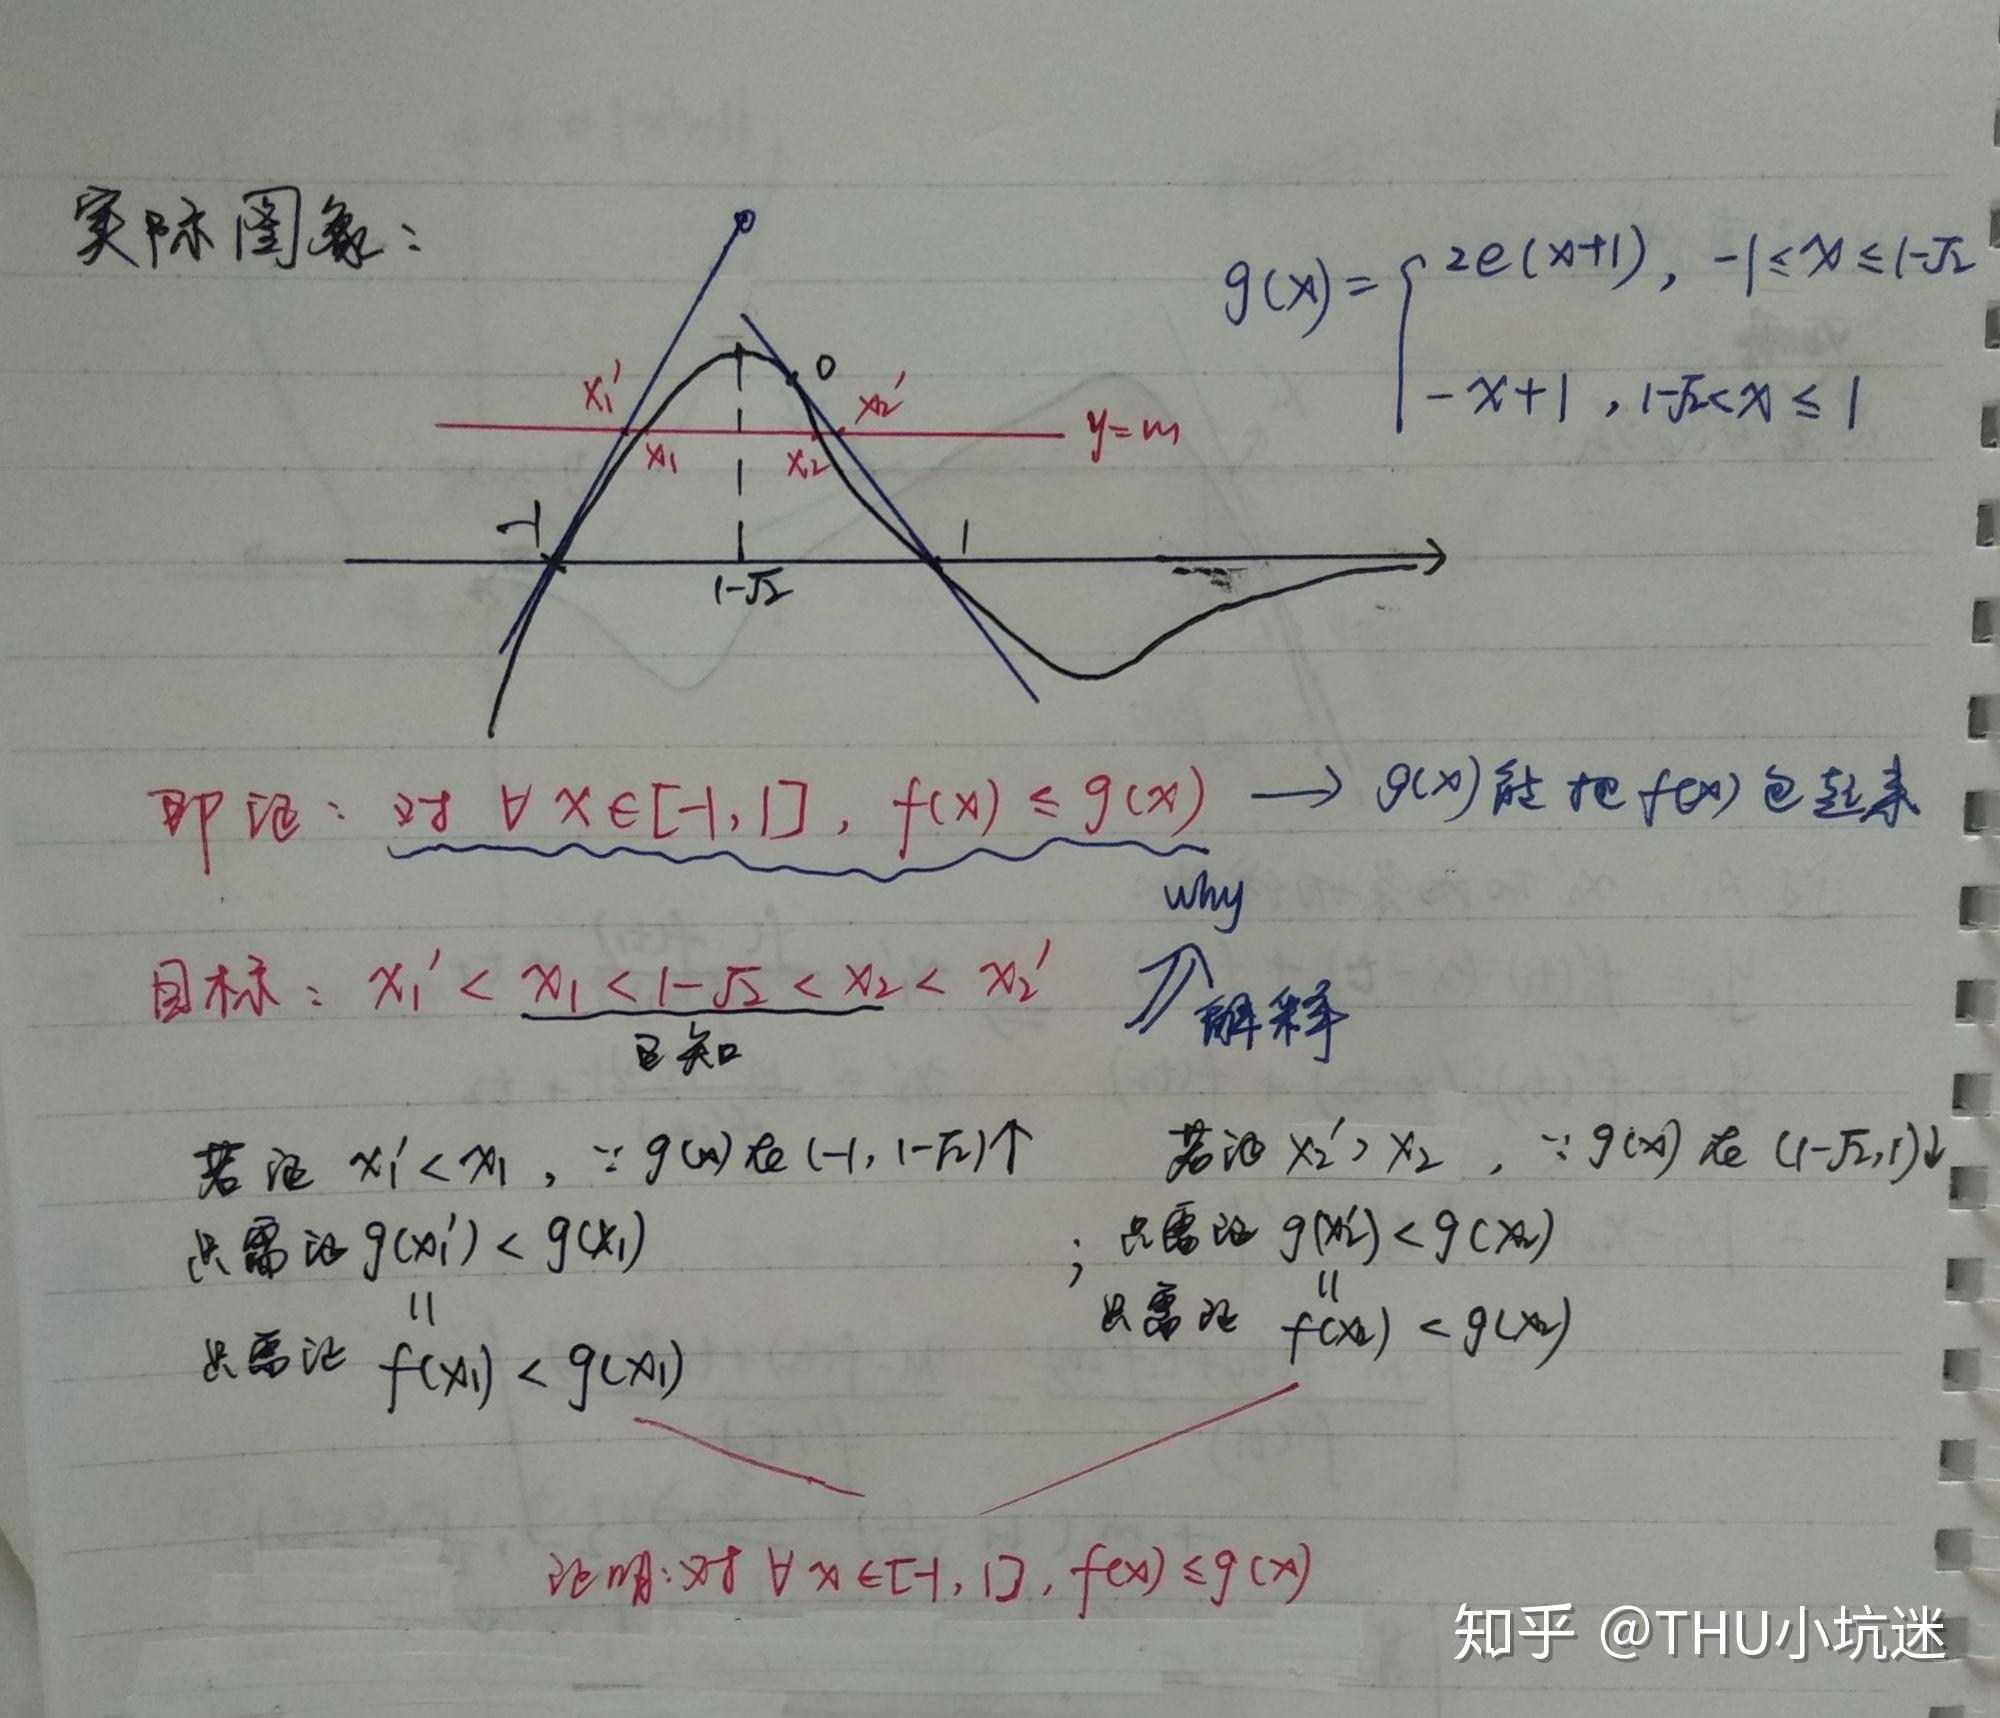 实际图象：
g(x)={2e(x+1), -1≤x≤1-√2
-x+1, 1-√2<x≤1
0
x₁' x₂'
y=m
x₁ x₂
-1 1
1-√2
即证：对 ∀x∈[-1,1], f(x)≤g(x) → g(x)能把f(x)包起来
why
目标：x₁'<x₁<1-√2<x₂<x₂'
解释
已知
若证 x₁'<x₁, ∵g(x)在(-1,1-√2)↑
只需证 g(x₁')<g(x₁)
=
只需证 f(x₁)<g(x₁)
若证 x₂'>x₂, ∵g(x)在(1-√2,1)↓
; 只需证 g(x₂')<g(x₂)
=
只需证 f(x₂)<g(x₂)
证明：对∀x∈[-1,1], f(x)≤g(x)
知乎 @THU小坑迷